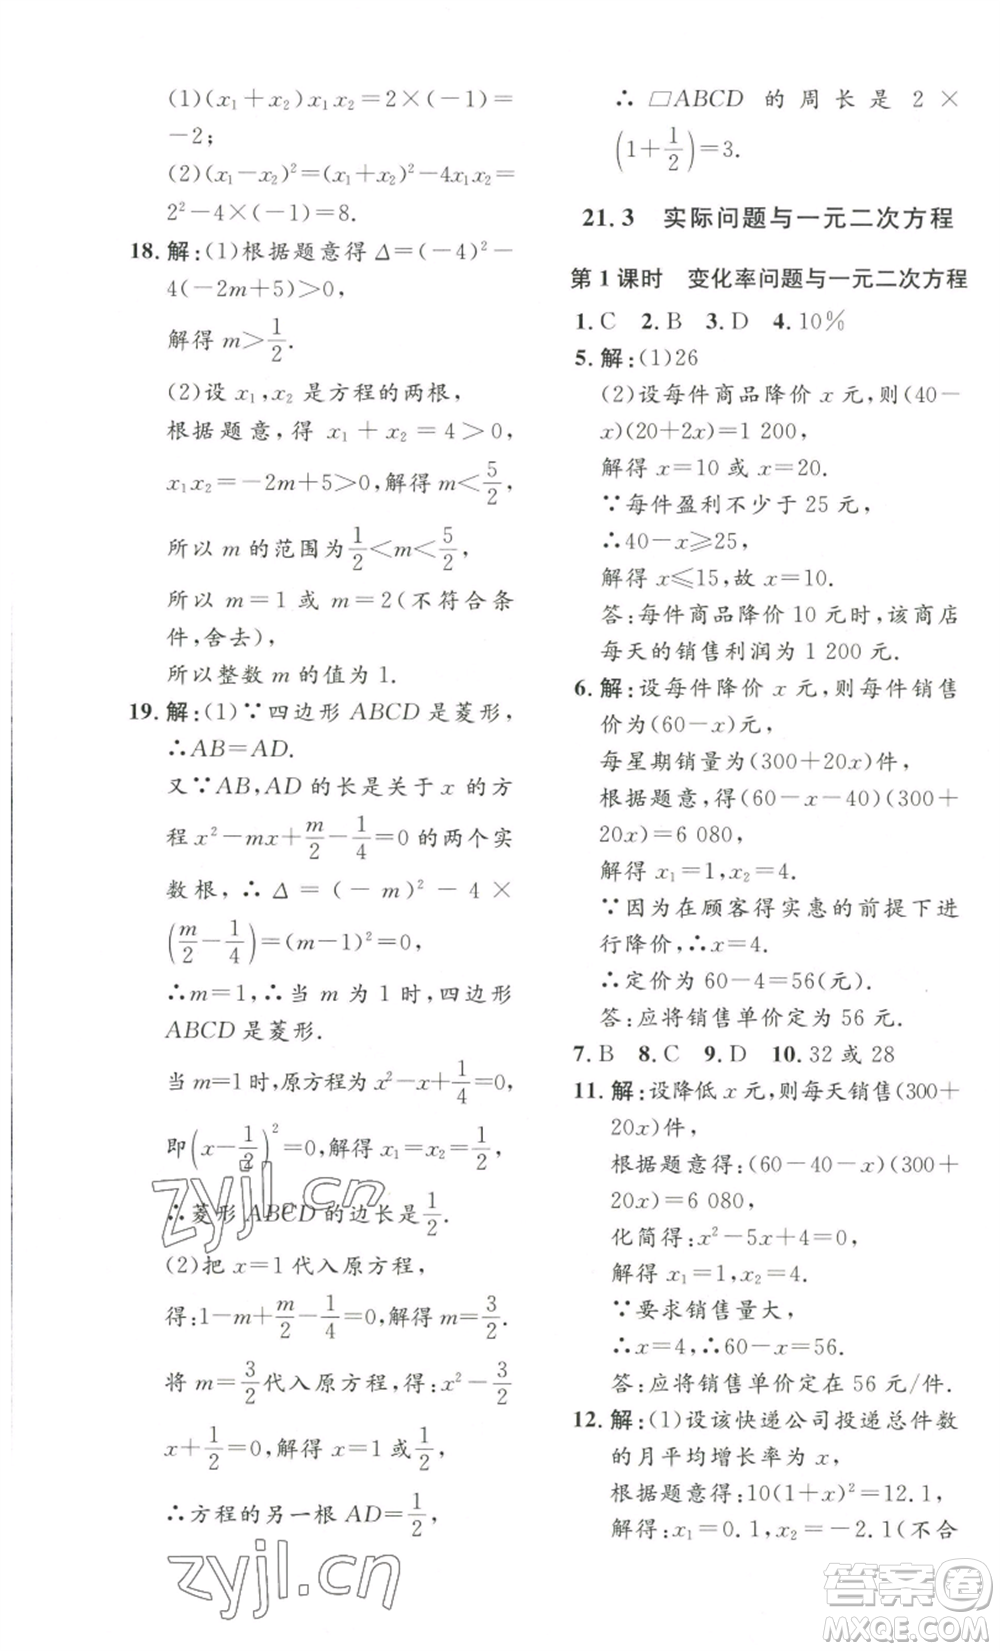 (1)(x₁+x₂)x₁x₂=2×(-1)=
-2;
(2)(x₁-x₂)²=(x₁+x₂)²-4x₁x₂=
2²-4×(-1)=8.
18. 解:(1)根据题意得 Δ=(-4)²-
4(-2m+5)>0,
解得 m>1/2.
(2)设 x₁,x₂ 是方程的两根,
根据题意,得 x₁+x₂=4>0,
x₁x₂=-2m+5>0,解得 m<5/2,
所以 m 的范围为1/2<m<5/2,
所以 m=1 或 m=2(不符合条
件,舍去),
所以整数 m 的值为 1.
19. 解:(1)∵四边形 ABCD 是菱形,
∴AB=AD.
又∵AB,AD 的长是关于 x 的方
程 x²-mx+m/2-1/4=0 的两个实
数根,∴Δ=(-m)²-4×
(m/2-1/4)=(m-1)²=0,
∴m=1,∴当 m 为 1 时,四边形
ABCD 是菱形.
当 m=1 时,原方程为 x²-x+1/4=0,
即(x-1/2)²=0,解得 x₁=x₂=1/2,
∴菱形 ABCD 的边长是1/2.
(2)把 x=1 代入原方程,
得:1-m+m/2-1/4=0,解得 m=3/2.
将 m=3/2代入原方程,得:x²-3/2
x+1/2=0,解得 x=1 或1/2,
∴方程的另一根 AD=1/2,
∴▱ABCD 的周长是 2×
(1+1/2)=3.
21.3 实际问题与一元二次方程
第 1 课时 变化率问题与一元二次方程
1. C 2. B 3. D 4. 10%
5. 解:(1)26
(2)设每件商品降价 x 元,则(40-
x)(20+2x)=1 200,
解得 x=10 或 x=20.
∵每件盈利不少于 25 元,
∴40-x≥25,
解得 x≤15,故 x=10.
答:每件商品降价 10 元时,该商店
每天的销售利润为 1 200 元.
6. 解:设每件降价 x 元,则每件销售
价为(60-x)元,
每星期销量为(300+20x)件,
根据题意,得(60-x-40)(300+
20x)=6 080,
解得 x₁=1,x₂=4.
∵因为在顾客得实惠的前提下进
行降价,∴x=4.
∴定价为 60-4=56(元).
答:应将销售单价定为 56 元.
7. B 8. C 9. D 10. 32 或 28
11. 解:设降低 x 元,则每天销售(300+
20x)件,
根据题意得:(60-40-x)(300+
20x)=6 080,
化简得:x²-5x+4=0,
解得 x₁=1,x₂=4.
∵要求销售量大,
∴x=4,∴60-x=56.
答:应将销售单价定在 56 元/件.
12. 解:(1)设该快递公司投递总件数
的月平均增长率为 x,
根据题意得:10(1+x)²=12.1,
解得:x₁=0.1,x₂=-2.1(不合
zyjl.cn
zyjl.cn
答案圈
MXQE.COM